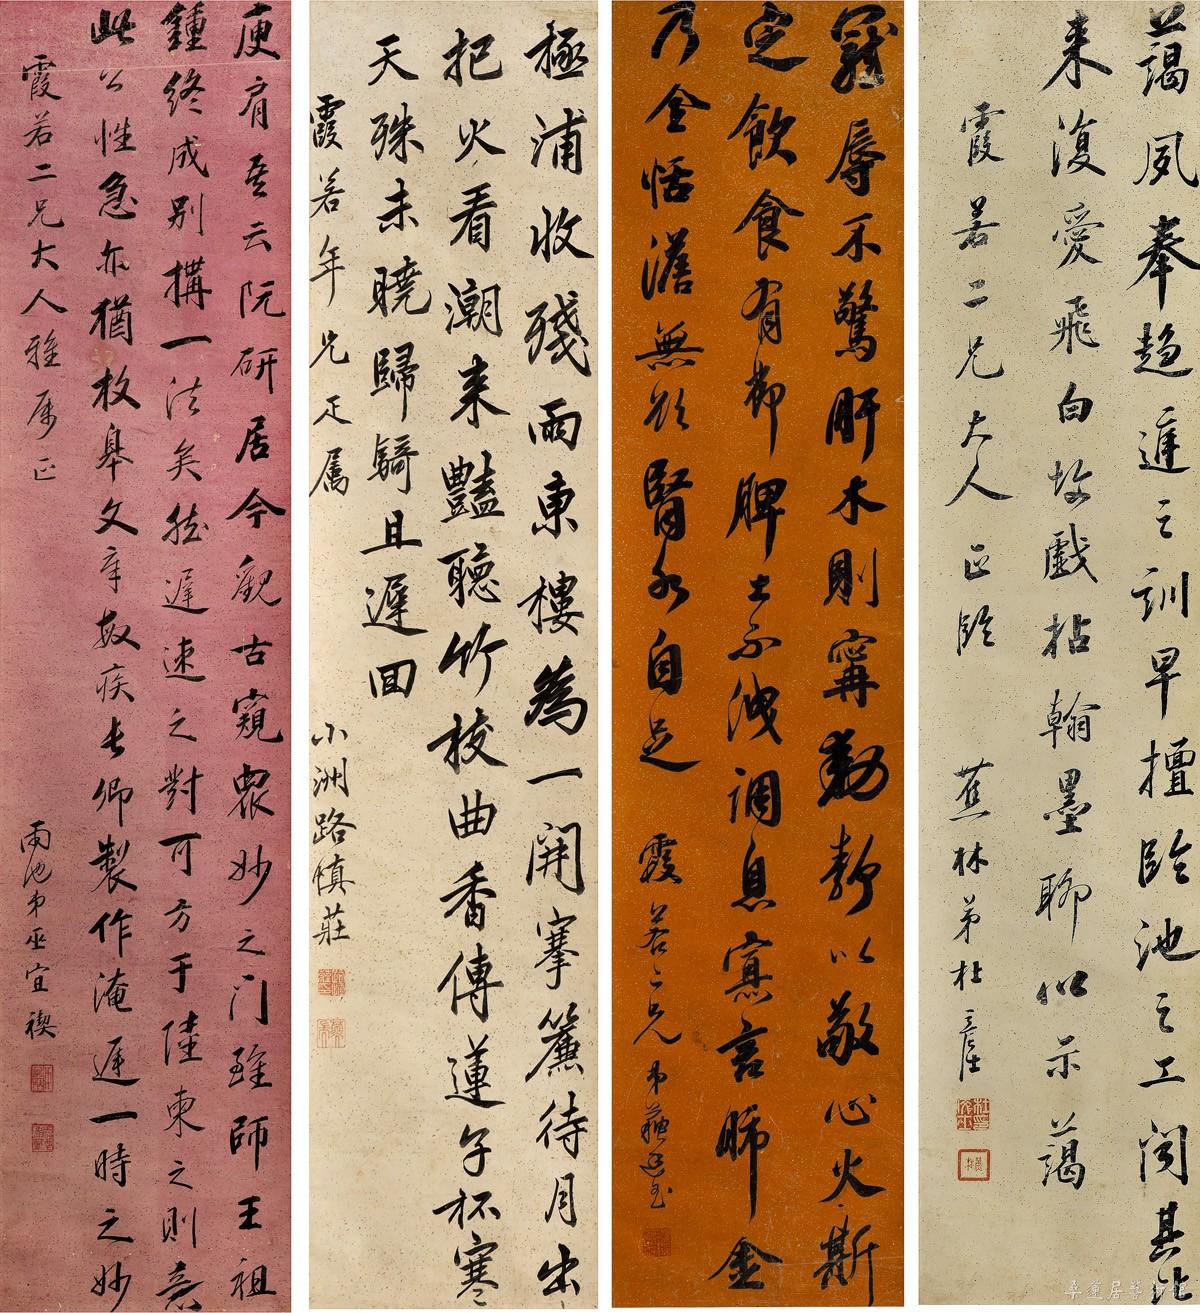 藹夙奉趨進之訓早擅臨池之工閱其
来復愛飛白故戲拈翰墨聊以示藹
霞若二兄大人正臨
蕉林弟杜
寵辱不驚肝木則寧動静以敬心火斯
定飲食有節脾土不洩調息寡言肺金
乃全恬澹無欲腎水自足
霞若二兄
弟蘇廷玉
極浦收殘雨東樓為一開搴簾待月出
把火看潮来豔聽竹枝曲香傳蓮子杯寒
天殊未曉歸騎且遲回
霞若年兄正屬
小洲路慎莊
庾肩吾云阮研居今觀古窺衆妙之门雖師王祖
鍾終成别構一法矣然遲速之對可方于陸柬之則意
此公性急亦猶枚皋文章敏疾長卿製作淹遲一時之妙
霞若二兄大人雅属正
雨池弟巫宜禊